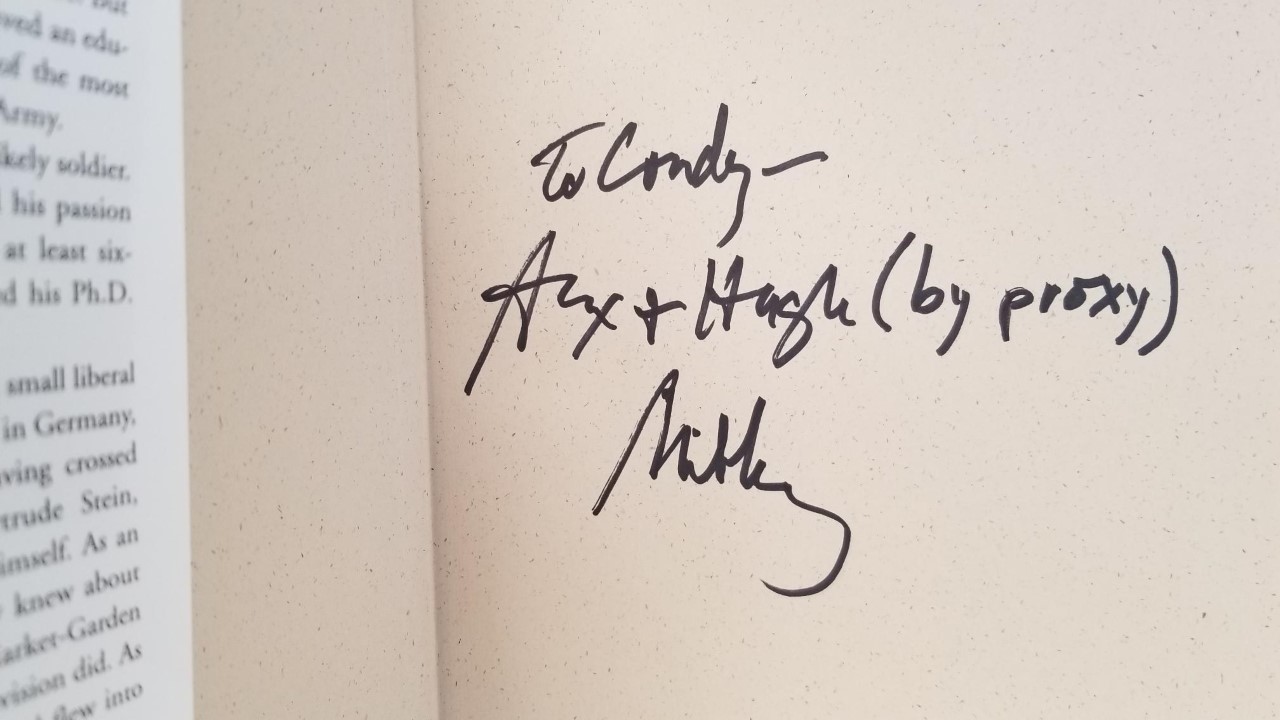 but
ved an edu-
of the most
Army.
ikely soldier.
his passion
at least six-
d his Ph.D.
small liberal
in Germany,
ving crossed
trude Stein,
imself. As an
knew about
arket-Garden
vision did. As
flew into
To Condy—
Alex + Hugh (by proxy)